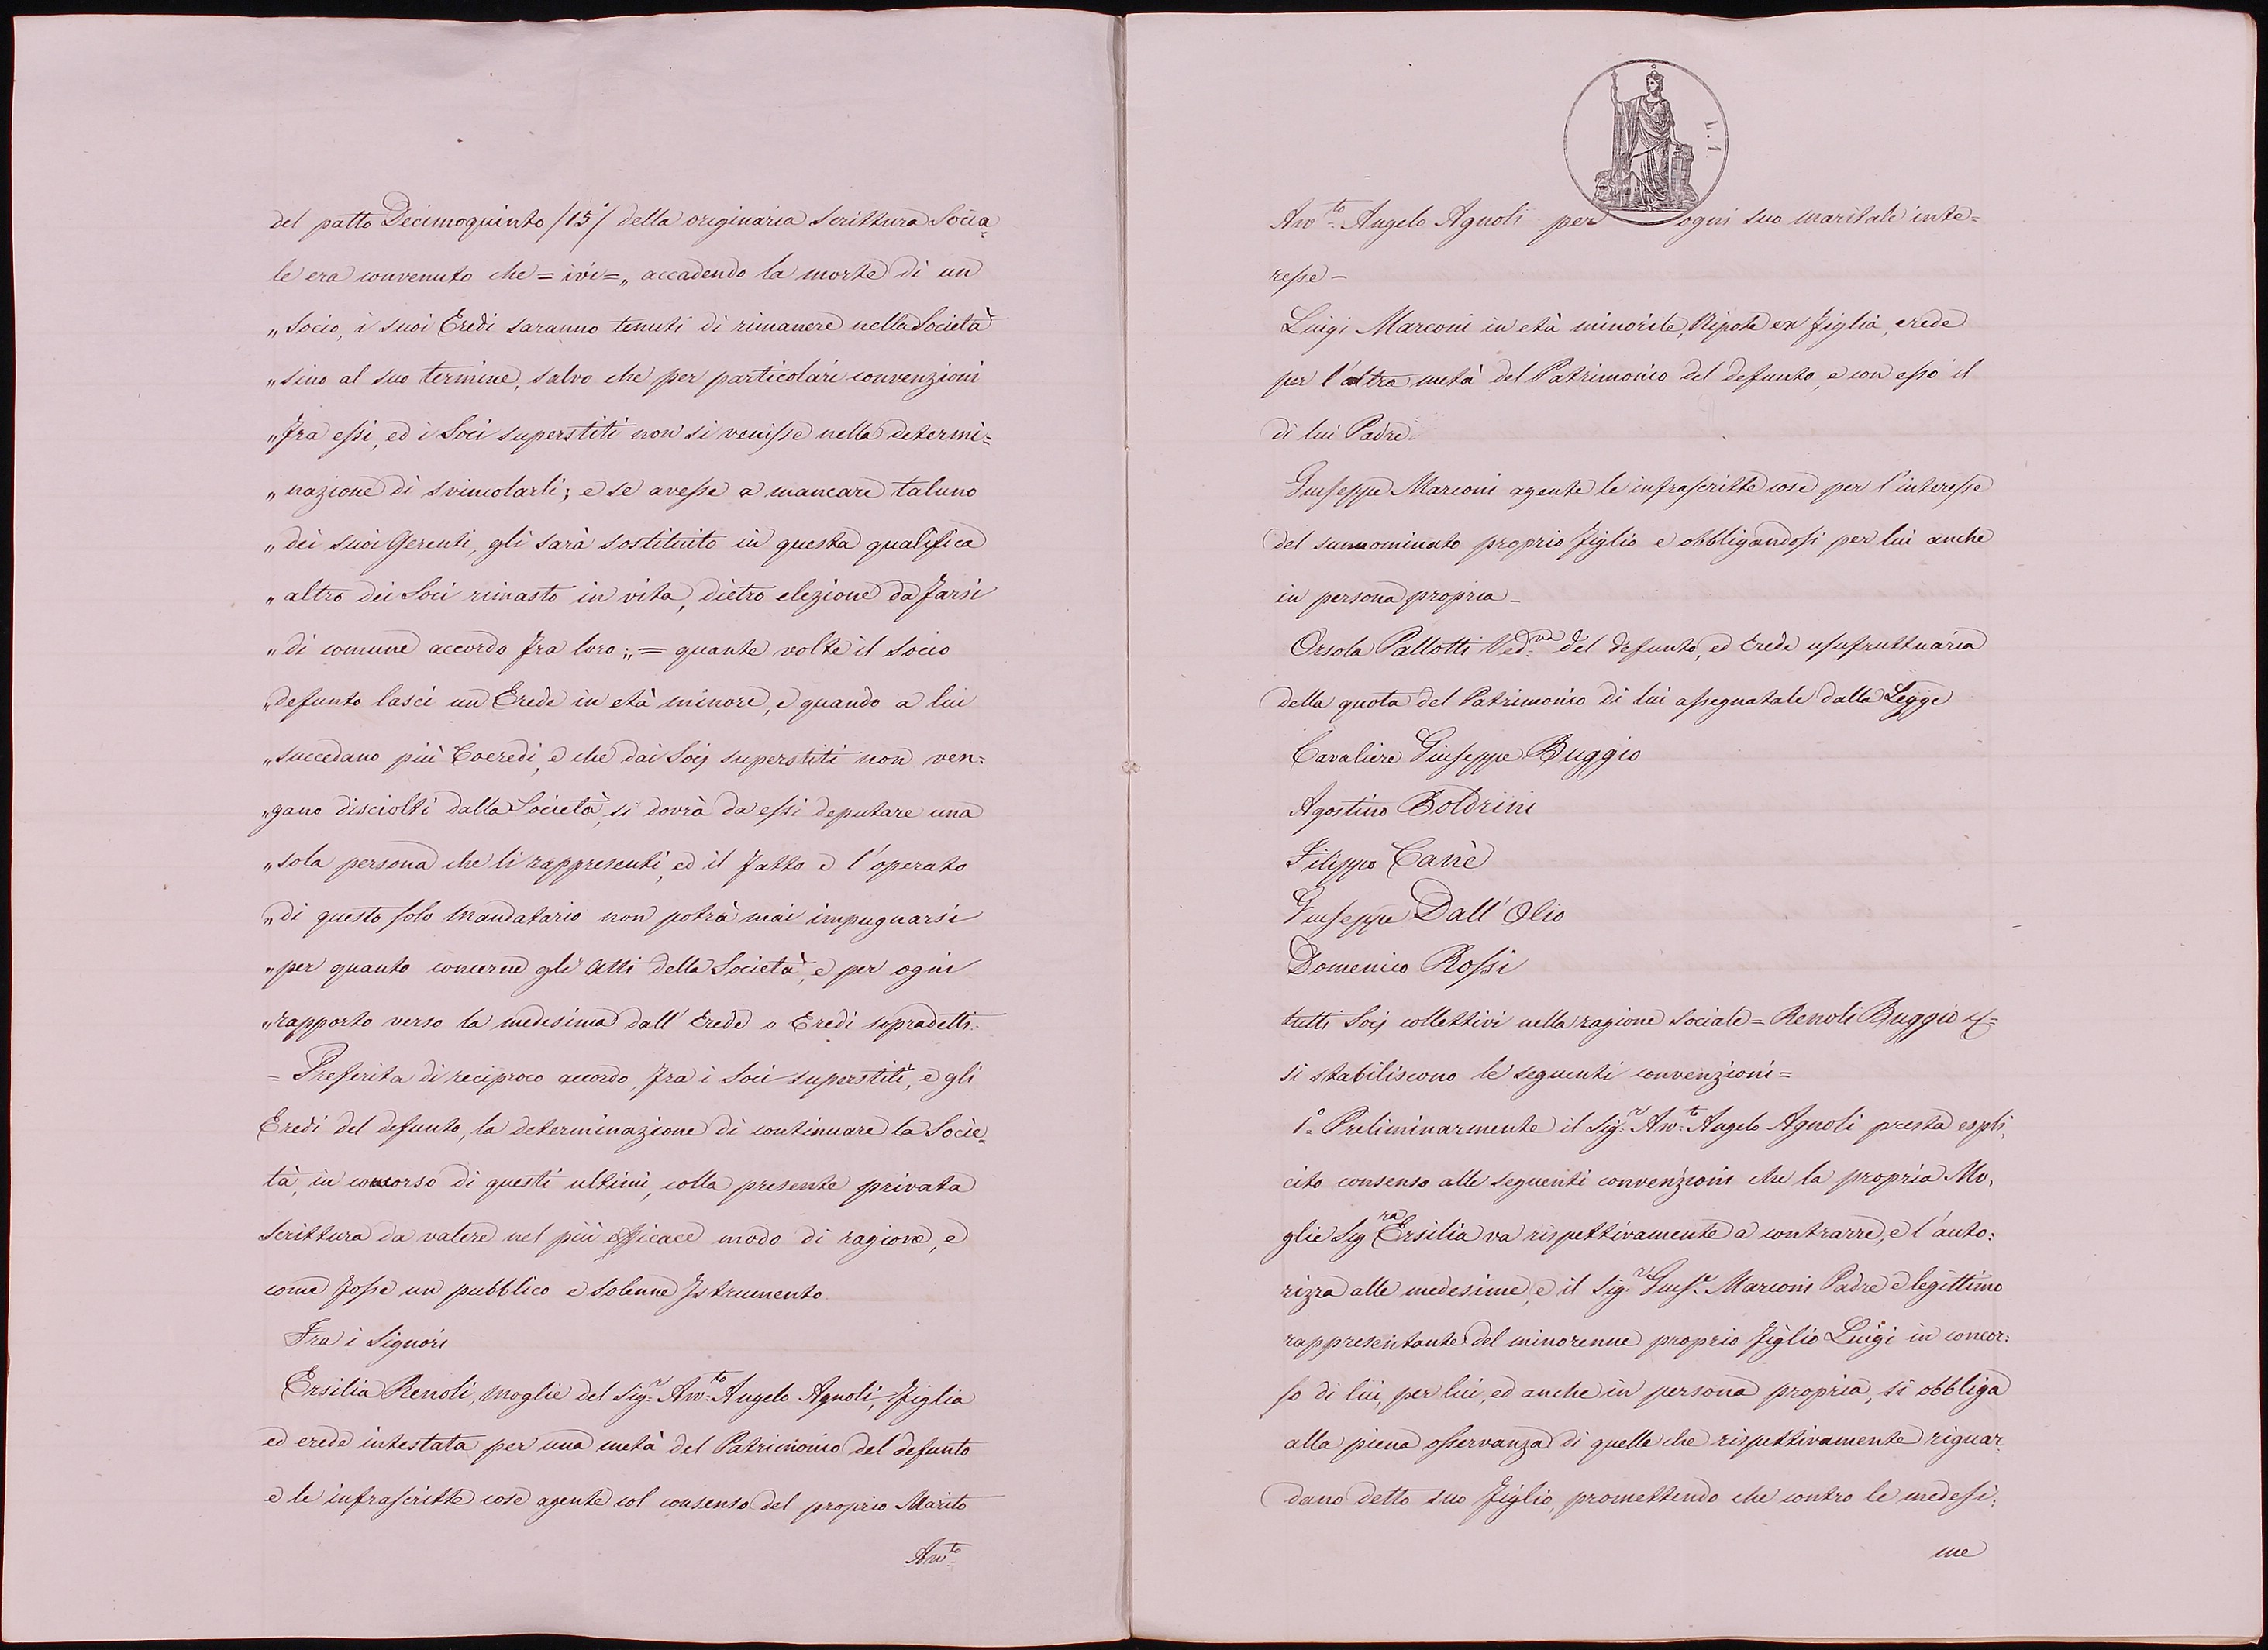 del patto Decimoquinto /15°/ della originaria Scrittura Socia=
le era convenuto che = ivi = „ accadendo la morte di un
„ Socio, i suoi Eredi saranno tenuti di rimanere nella Società
„ sino al suo termine, salvo che per particolari convenzioni
„ fra essi, ed i Soci superstiti non si venisse nella determi=
„ nazione di svincolarli; e se avesse a mancare taluno
„ dei suoi Gerenti, gli sarà sostituito in questa qualifica
„ altro dei Soci rimasto in vita, dietro elezione da farsi
„ di comune accordo fra loro; „ = quante volte il Socio
„ defunto lasci un Erede in età minore, e quando a lui
„ succedano più Coeredi, e che dai Socj superstiti non ven=
„ gano disciolti dalla Società, si dovrà da essi deputare una
„ sola persona che li rappresenti, ed il fatto e l'operato
„ di questo solo Mandatario non potrà mai impugnarsi
„ per quanto concerne gli Atti della Società, e per ogni
„ rapporto verso la medesima dall'Erede o Eredi sopradetti.
= Preferita di reciproco accordo, fra i Soci superstiti, e gli
Eredi del defunto, la determinazione di continuare la Socie=
tà, in concorso di questi ultimi, colla presente privata
Scrittura da valere nel più efficace modo di ragione, e
come fosse un pubblico e solenne Istrumento
Fra i Signori
Ersilia Renoli, moglie del Sig.r Avv.to Angelo Agnoli, figlia
ed erede intestata per una metà del Patrimonio del defunto
e le infrascritte cose agente col consenso del proprio Marito
Avv.to
L. 1
Avv.to Angelo Agnoli per ogni suo maritale inte=
resse –
Luigi Marconi in età minorile, Nipote ex figlia, erede
per l'altra metà del Patrimonio del defunto, e con esso il
di lui Padre
Giuseppe Marconi agente le infrascritte cose per l'interesse
del sunnominato proprio figlio e obbligandosi per lui anche
in persona propria –
Orsola Pallotti Ved.va del defunto, ed Erede usufruttuaria
della quota del Patrimonio di lui assegnatale dalla Legge
Cavaliere Giuseppe Buggio
Agostino Boldrini
Filippo Canè
Giuseppe Dall'Olio
Domenico Rossi
tutti Socj collettivi nella ragione sociale = Renoli Buggio e C. =
si stabiliscono le seguenti convenzioni =
1.° Preliminarmente il Sig.r Avv.to Angelo Agnoli presta espli=
cito consenso alle seguenti convenzioni che la propria Mo=
glie Sig.ra Ersilia va rispettivamente a contrarre, e l'auto=
rizza alle medesime, e il Sig.r Gius.e Marconi Padre e legittimo
rappresentante del minorenne proprio figlio Luigi in concor=
so di lui, per lui, ed anche in persona propria, si obbliga
alla piena osservanza di quelle che rispettivamente riguar=
dano detto suo figlio, promettendo che contro le medesi=
me